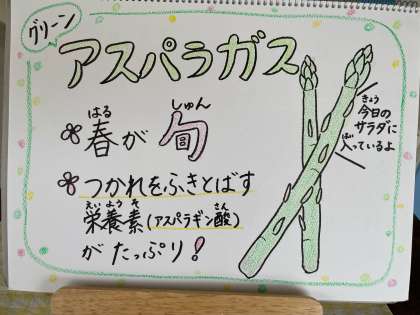 グリーン
アスパラガス
はる しゅん
春が旬
つかれをふきとばす
えいようそ さん
栄養素(アスパラギン酸)
がたっぷり!
きょう
今日の
サラダに
はい
入っているよ